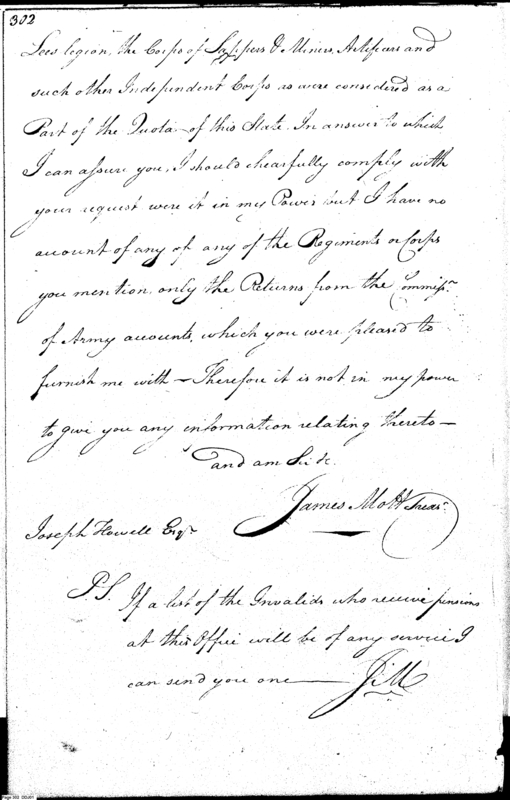 302
Lees legion, the Corps of Sappers & Miners, Artificers and
such other Independent Corps as were considered as a
Part of the Quota of this State. In answer to which
I can assure you, I should chearfully comply with
your request were it in my Power but I have no
account of any of any of the Regiments or Corps
you mention, only the Returns from the Commissr.
of Army accounts, which you were pleased to
furnish me with — Therefore it is not in my power
to give you any information relating thereto —
and am Sir &c.
James Mott Treasr.
Joseph Howell Esqr.
P.S. If a list of the Invalids who receive pensions
at this Office will be of any service I
can send you one — J:M